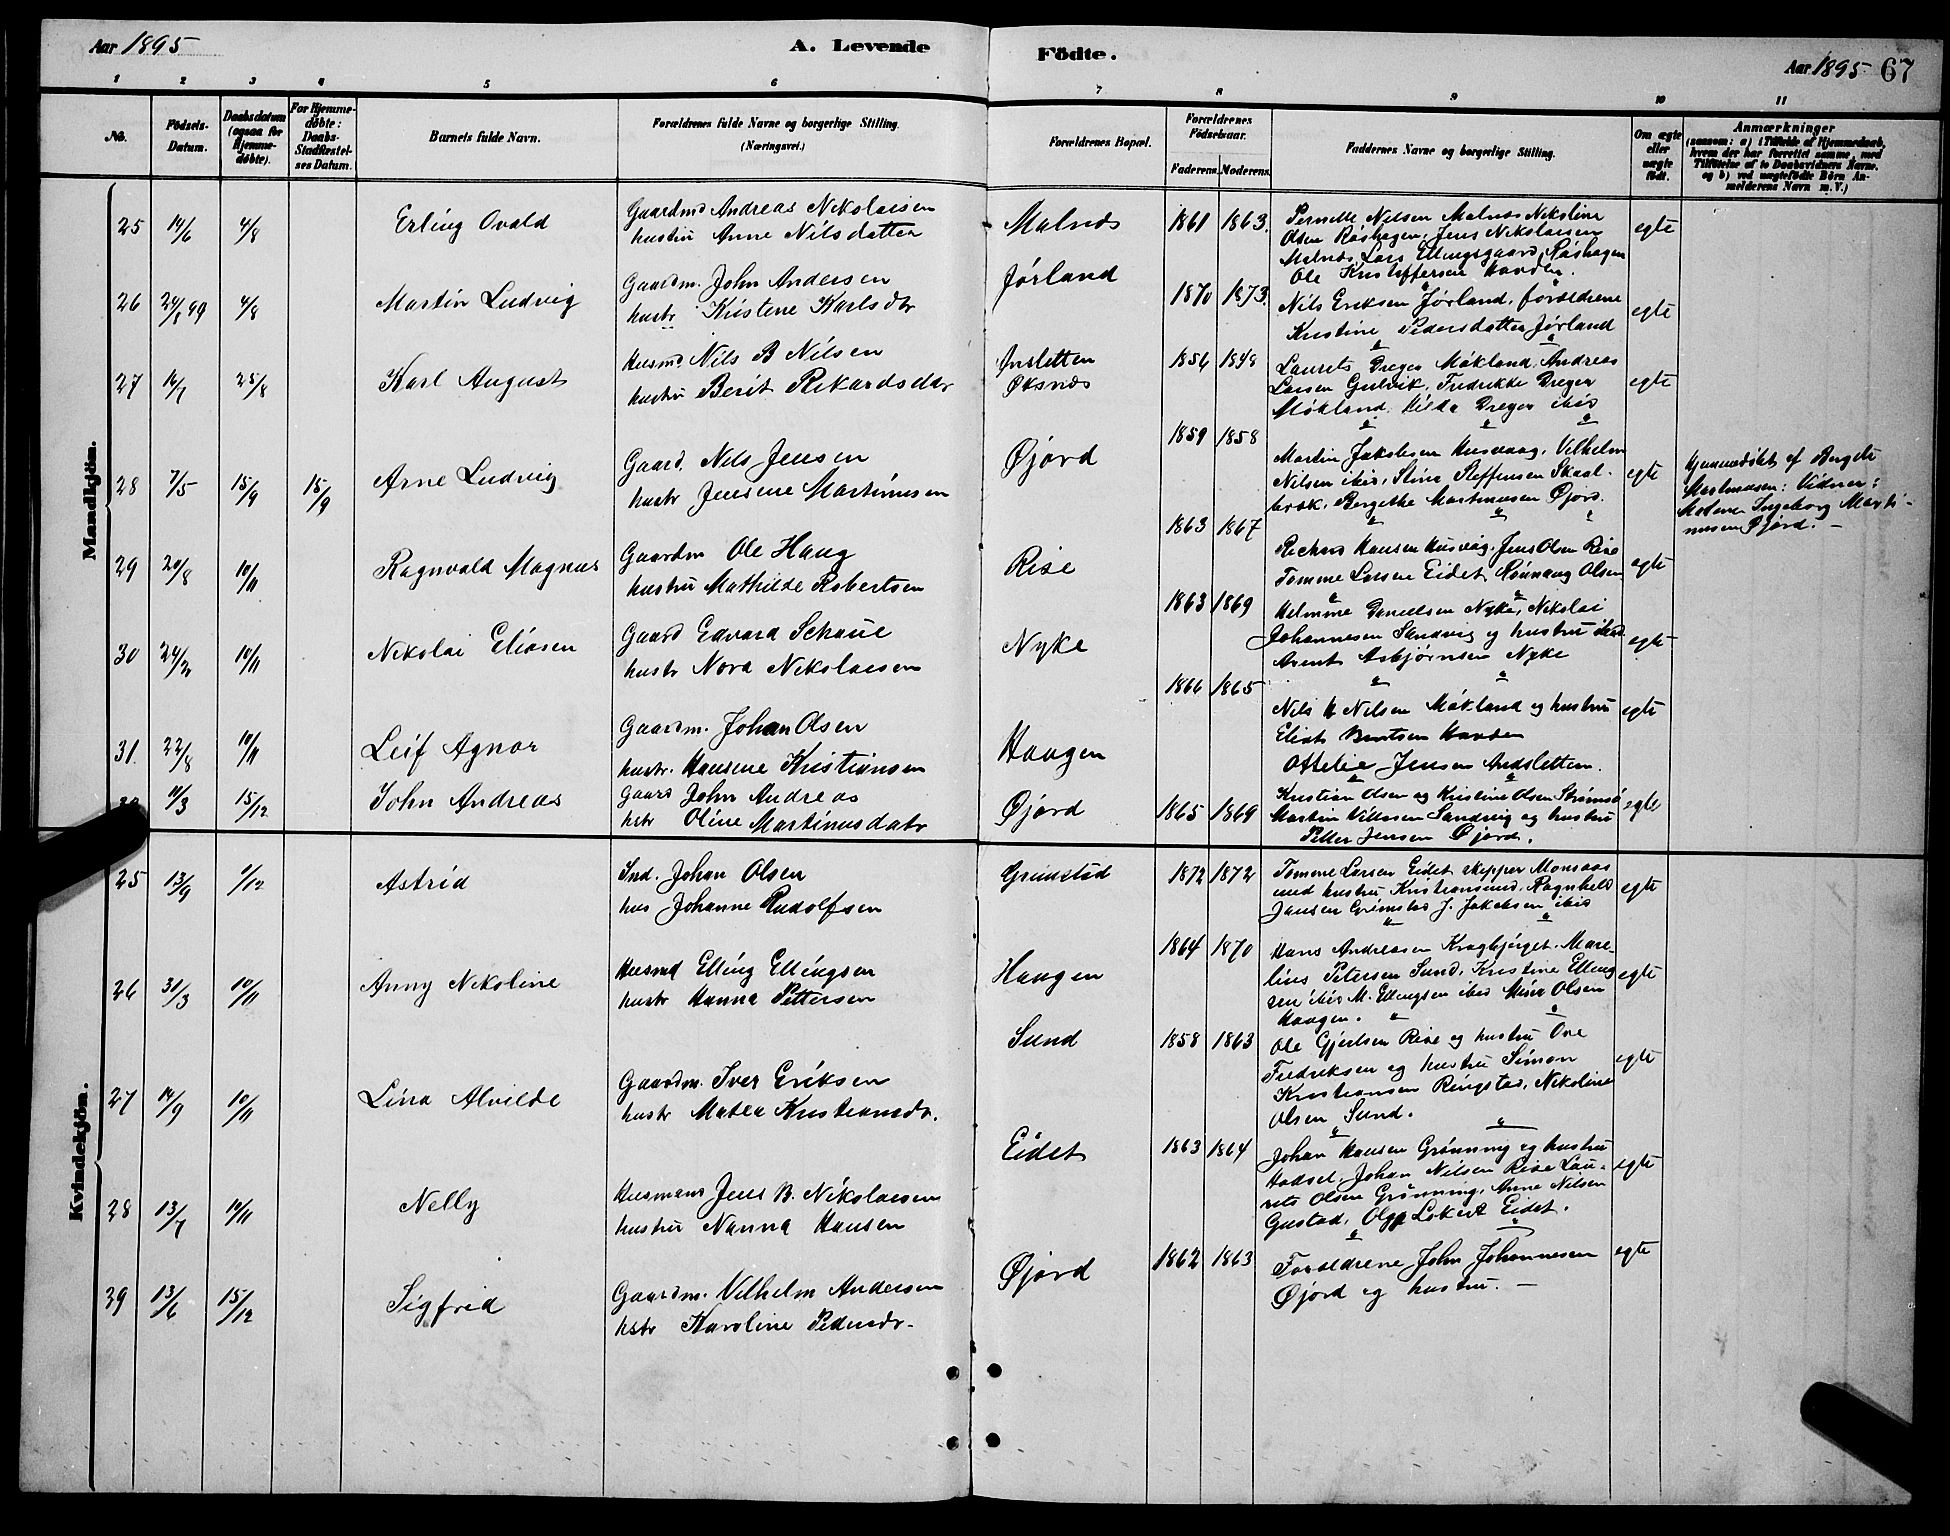 Aar 1895
A. Levende
Födte.
Aar 1895
67
1 2 3 4 5 6 7 8 9 10 11
No.
Födsels-
Datum.
Daabsdatum
(ogsaa for
Hjemme-
døbte).
For Hjemme-
døbte:
Daabs-
Stadfæstel-
ses Datum.
Barnets fulde Navn.
Forældrenes fulde Navne og borgerlige Stilling.
(Næringsvei.)
Forældrenes Bopæl.
Forældrenes
Födselsaar.
Faderens. Moderens.
Faddernes Navne og borgerlige Stilling.
Om ægte
eller
uægte
födt.
Anmærkninger
(saasom: a) i Tilfælde af Hjemmedaab,
hvem der har forrettet samme, med
Tilføielse af to Daabsvidners Navne,
og b) ved uægtefödte Börn An-
melderens Navn m. V.)
Mandkjön.
25 14/6 4/8 Erling Ovald
Gaardmd Andreas Nikolaisen
hustru Anne Nilsdatter
Malnes 1861 1863.
Pernelle Nilsen Malnes Nikoline
Olsen Røshagen, Jens Nikolaisen
Malnes Lars Ellingsgaard, Røshagen
Ole Kristoffersen Hovden.
egte
26 24/8 99 4/8 Martin Ludvig
Gaardm. John Andersen
hustr Kristene Karlsdtr
Jørland 1870 1873.
Nils Eriksen Jørland, forældrene
Kristine Pedersdatter Jørland
egte
27 14/7 25/8 Karl August
Husmd. Nils B Nilsen
hustru Berit Rikardsdtr
Ønsletten
Øksnes
1856 1848
Laurets Dreyer Møkland, Andreas
Larsen Gulvik, Fredrikke Dreyer
Møkland, Hilda Dreyer ibid
egte
28 7/5 15/9 15/9 Arne Ludvig
Gaard. Nils Jensen
hustr Jensine Martinusen
Øjord 1859 1858
Martin Jakobsen Husvaag, Vilhelm
Nilsen ibid, Stine Steffensen Skaal-
brek, Bergethe Martinusen Øjord.
egte
Hjemmedøbt af Bergete
Martinusen: Vidner:
Moderen Ingeborg Marti-
nusen Øjord. —
29 20/8 10/11 Ragnvald Magnus
Gaardm Ole Haug
hustru Mathilde Robertsen
Rise 1863 1867
Richard Hansen Husvåg, Jens Olsen Rise
Tomme Larsen Eidet, Rønnaug Olsen
egte
30 24/2 10/11 Nikolai Eliasen
Gaard Edvard Schaue
hustr Nora Nikolaisen
Nyke 1863 1869
Helmine Danielsen Nyke, Nikolai
Johannesen Sandvig og hustru ibid
Arent Asbjørnsen Nyke
egte
31. 22/8 10/11 Leif Agnar
Gaardm. Johan Olsen
hustr. Hansine Kristiansen
Haagen 1866 1865
Nils H Nilsen Møkland og hustru
Elias Bentsen Hovden
Ottelie Jensen Andsletten.
egte
11/3 15/12 John Andreas
Gaard John Andreas
hstr Oline Martinusdatr
Øjord 1865 1869
Kristian Olsen og Kristine Olsen Strømsø
Martin Villasen Sandvig og hustru
Petter Jensen Øjord.
egte
Kvindekjön.
25 13/9 1/12 Astrid
Ind. Johan Olsen
hus Johanne Rudolfsen
Grimstad 1872 1872
Tomme Larsen Eidet skipper Monsaas
med hustru Kristiansund, Ragnhild
Jansen Grimstad J. Jakobsen ibid
egte
26 31/3 10/11 Anny Nikoline
Husmd Elling Ellingsen
hustr Hanna Pettersen
Haugen 1864 1870
Hans Andreasen Kragbjerget, Mare-
lius Petersen Sund, Kristine Elling
sen ibid M. Ellingsen ibid Olsen
Haagen.
egte
27 14/9 10/11 Lina Alvilde
Gaardm. Iver Eriksen
hustr Matea Kristiansdr.
Sund 1858 1863
Ole Gjertsen Rise og hustru Ove
Fredriksen og hustru Simon
Kristiansen Ringstad, Nikoline
Olsen Sund.
egte
28 13/7 10/11 Nelly
Husmand Jens B. Nikolaisen
hustru Nanna Hansen
Eidet 1863 1864
Johan Hansen Grønning og hustru
Hadsel, Johan Nilsen Rise Lau-
rets Olsen Grønning, Anne Nilsen
Gustad, Olga Lokert Eidet.
egte
39 13/6 15/12 Sigfrid
Gaardm. Vilhelm Andersen
hstr Karoline Pedersdr.
Øjord 1862 1863
Forældrene John Johannesen
Øjord og hustru. —
egte